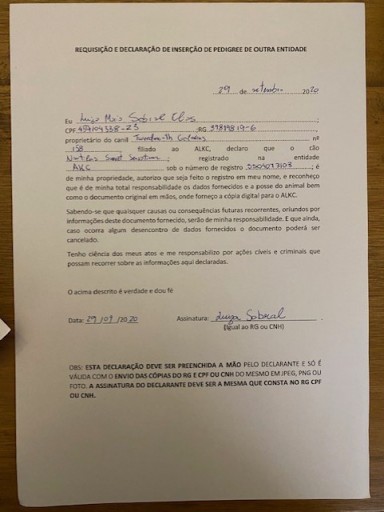 REQUISIÇÃO E DECLARAÇÃO DE INSERÇÃO DE PEDIGREE DE OUTRA ENTIDADE
29 de setembro 2020
Eu Sobral ;
CPF RG ;
proprietário do canil nº
158 filiado ao ALKC, declaro que o cão
Sweet ; registrado na entidade
AKC sob o número de registro ; é
de minha propriedade, autorizo que seja feito o registro em meu nome, e reconheço
que é de minha total responsabilidade os dados fornecidos e a posse do animal bem
como o documento original em mãos, onde forneço a cópia digital para o ALKC.
Sabendo-se que quaisquer causas ou consequências futuras recorrentes, oriundos por
informações deste documento fornecido, serão de minha responsabilidade. E que ainda,
caso ocorra algum desencontro de dados fornecidos o documento poderá ser
cancelado.
Tenho ciência dos meus atos e me responsabilizo por ações cíveis e criminais que
possam recorrer sobre as informações aqui declaradas.
O acima descrito é verdade e dou fé
Data: 29/09/2020 Assinatura: Luiza Sobral
(Igual ao RG ou CNH)
OBS: ESTA DECLARAÇÃO DEVE SER PREENCHIDA A MÃO PELO DECLARANTE E SÓ É
VÁLIDA COM O ENVIO DAS CÓPIAS DO RG E CPF OU CNH DO MESMO EM JPEG, PNG OU
FOTO. A ASSINATURA DO DECLARANTE DEVE SER A MESMA QUE CONSTA NO RG CPF
OU CNH.